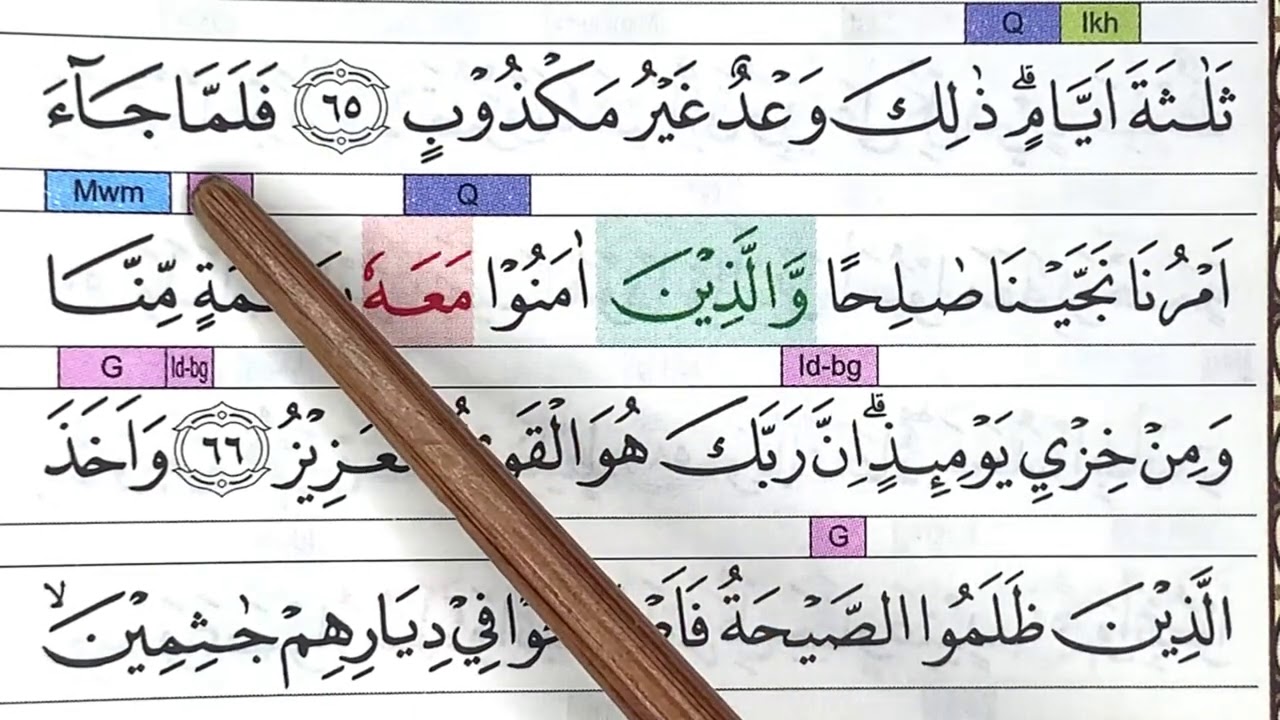 Q Ikh
ثَلٰثَةَ اَيَّامٍۗ ذٰلِكَ وَعْدٌ غَيْرُ مَكْذُوْبٍ ٦٥ فَلَمَّا جَاۤءَ
Mwm Q
اَمْرُنَا نَجَّيْنَا صٰلِحًا وَّالَّذِيْنَ اٰمَنُوْا مَعَهٗ مِّنَّا
G Id-bg Id-bg
وَمِنْ خِزْيِ يَوْمِىِٕذٍۗ اِنَّ رَبَّكَ هُوَ الْقَوِيُّ الْعَزِيْزُ ٦٦ وَاَخَذَ
G
الَّذِيْنَ ظَلَمُوا الصَّيْحَةُ فِيْ دِيَارِهِمْ جٰثِمِيْنَۙ